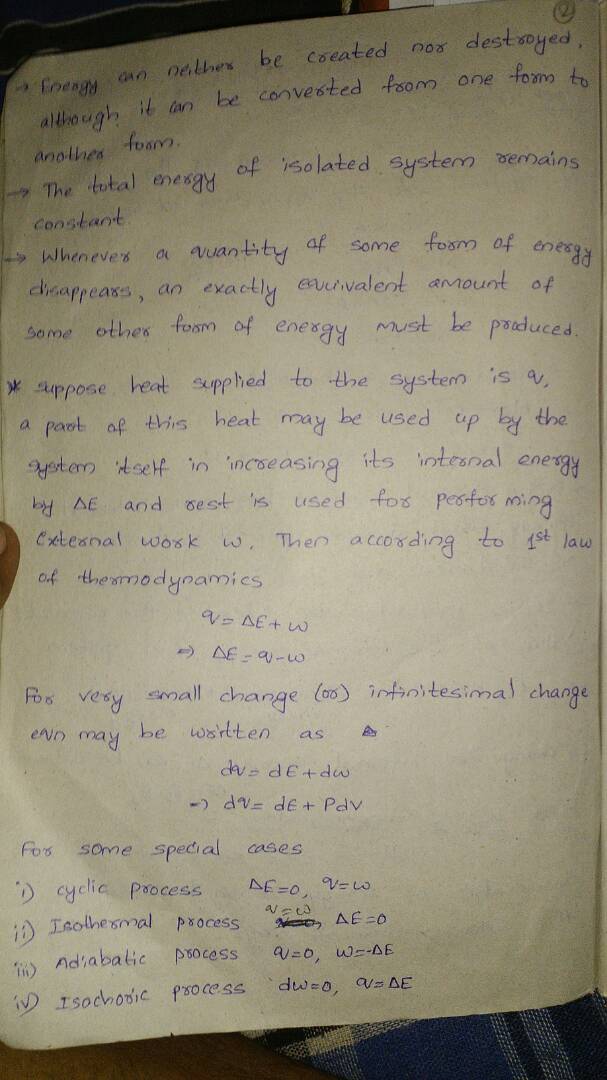 ②
→ Energy can neither be created nor destroyed,
although it can be converted from one form to
another form.
→ The total energy of isolated system remains
constant
→ Whenever a quantity of some form of energy
disappears, an exactly equivalent amount of
some other form of energy must be produced.
* suppose heat supplied to the system is q,
a part of this heat may be used up by the
system itself in increasing its internal energy
by ΔE and rest is used for performing
External work w. Then according to 1st law
of thermodynamics
q = ΔE + w
⇒ ΔE = q - w
For very small change (or) infinitesimal change
eqn may be written as
dq = dE + dw
⇒ dq = dE + PdV
For some special cases
i) cyclic process ΔE=0, q=w
ii) Isothermal process q=w, ΔE=0
iii) Adiabatic process q=0, w=-ΔE
iv) Isochoric process dw=0, q=ΔE